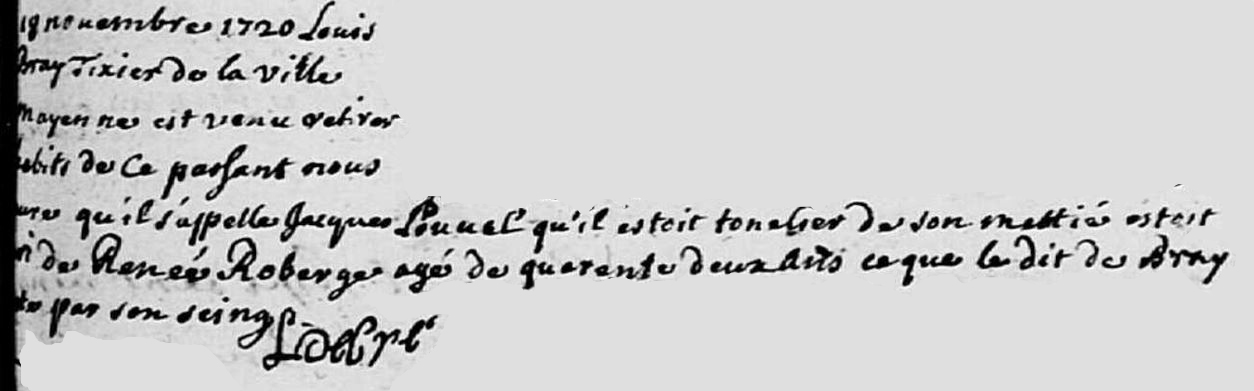 19 novembre 1720 Louis
Bray Tixier de la ville
mayenne est venu retirer
habits de Ce passant nous
ure qu'il s'appelle Jacques Louuel qu'il estoit tonelier de son mettié estoit
ri de Reneé Roberge agé de quarente deux Ans ce que le dit de Bray
te par son seing